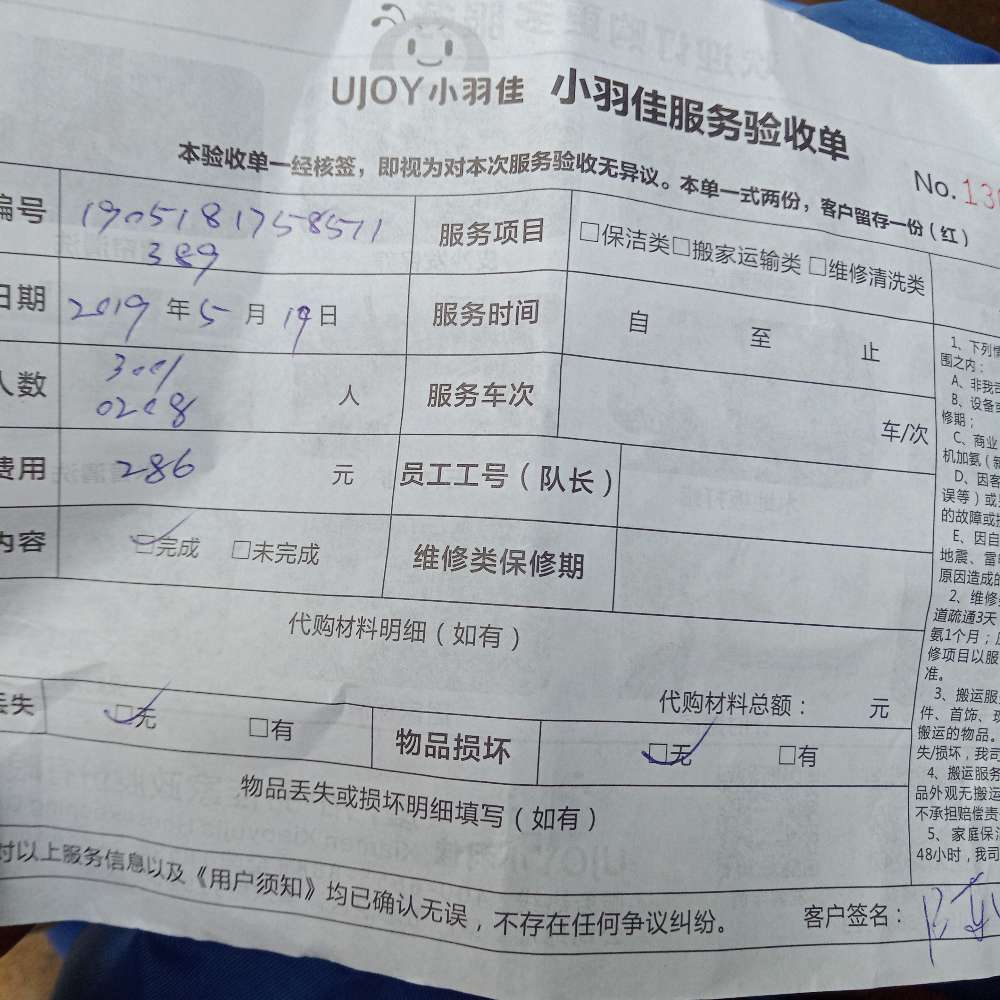 UJOY小羽佳 小羽佳服务验收单
本验收单一经核签，即视为对本次服务验收无异议。本单一式两份，客户留存一份（红）
No.13
编号 1905181758511 服务项目 □保洁类□搬家运输类 □维修清洗类
389
日期 2019年5月19日 服务时间 自 至 止
人数 3001 人 服务车次 车/次
0208
费用 286 元 员工工号（队长）
内容 □完成 □未完成 维修类保修期
代购材料明细（如有）
代购材料总额： 元
丢失 □无 □有 物品损坏 □无 □有
物品丢失或损坏明细填写（如有）
对以上服务信息以及《用户须知》均已确认无误，不存在任何争议纠纷。 客户签名：
1、下列情
围之内：
A、非我司
B、设备
修期；
C、商业
机加氨（新
D、因客
误等）或
的故障或
E、因自
地震、雷
原因造成的
2、维修
道疏通3天
氨1个月；
修项目以服
准。
3、搬运服
件、首饰、现
搬运的物品。
失/损坏，我司
4、搬运服务
品外观无搬运
不承担赔偿责
5、家庭保洁
48小时，我司